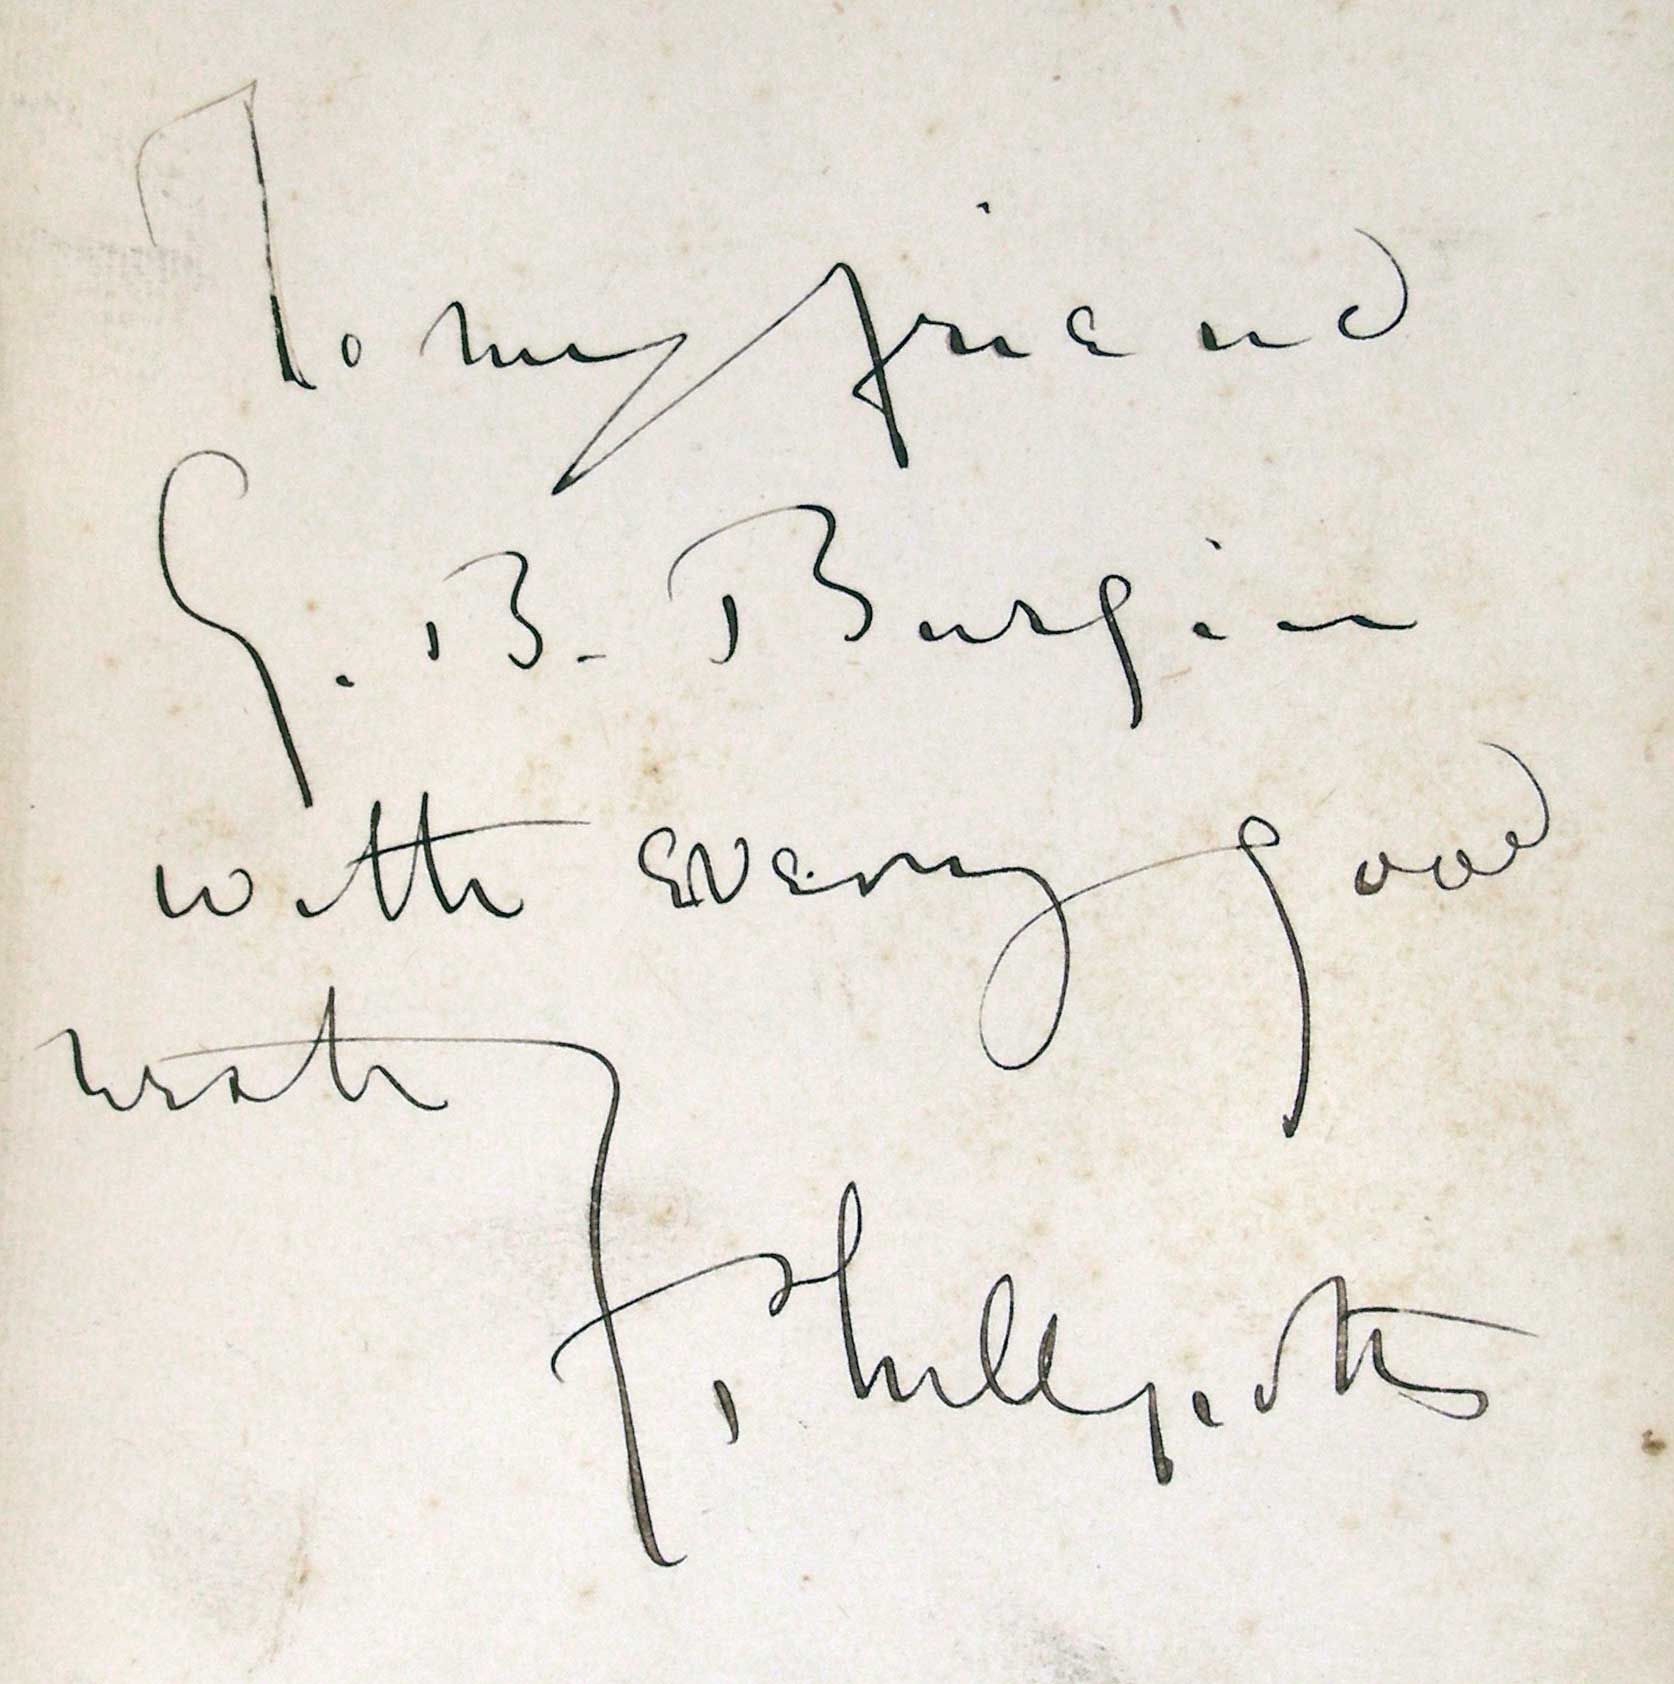 To my friend
G. B. Burgin
with every good
wish
Phillpotts